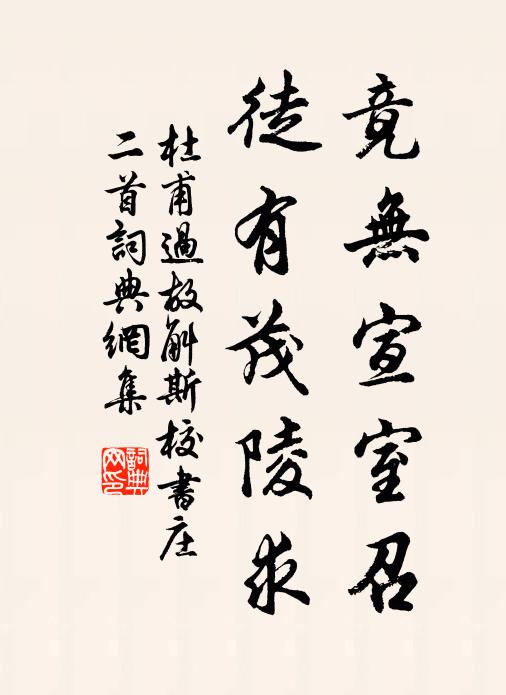 竟無宣室召
徒有茂陵求
杜甫過故斛斯校書庄
二首詞典網集
詞典
网印